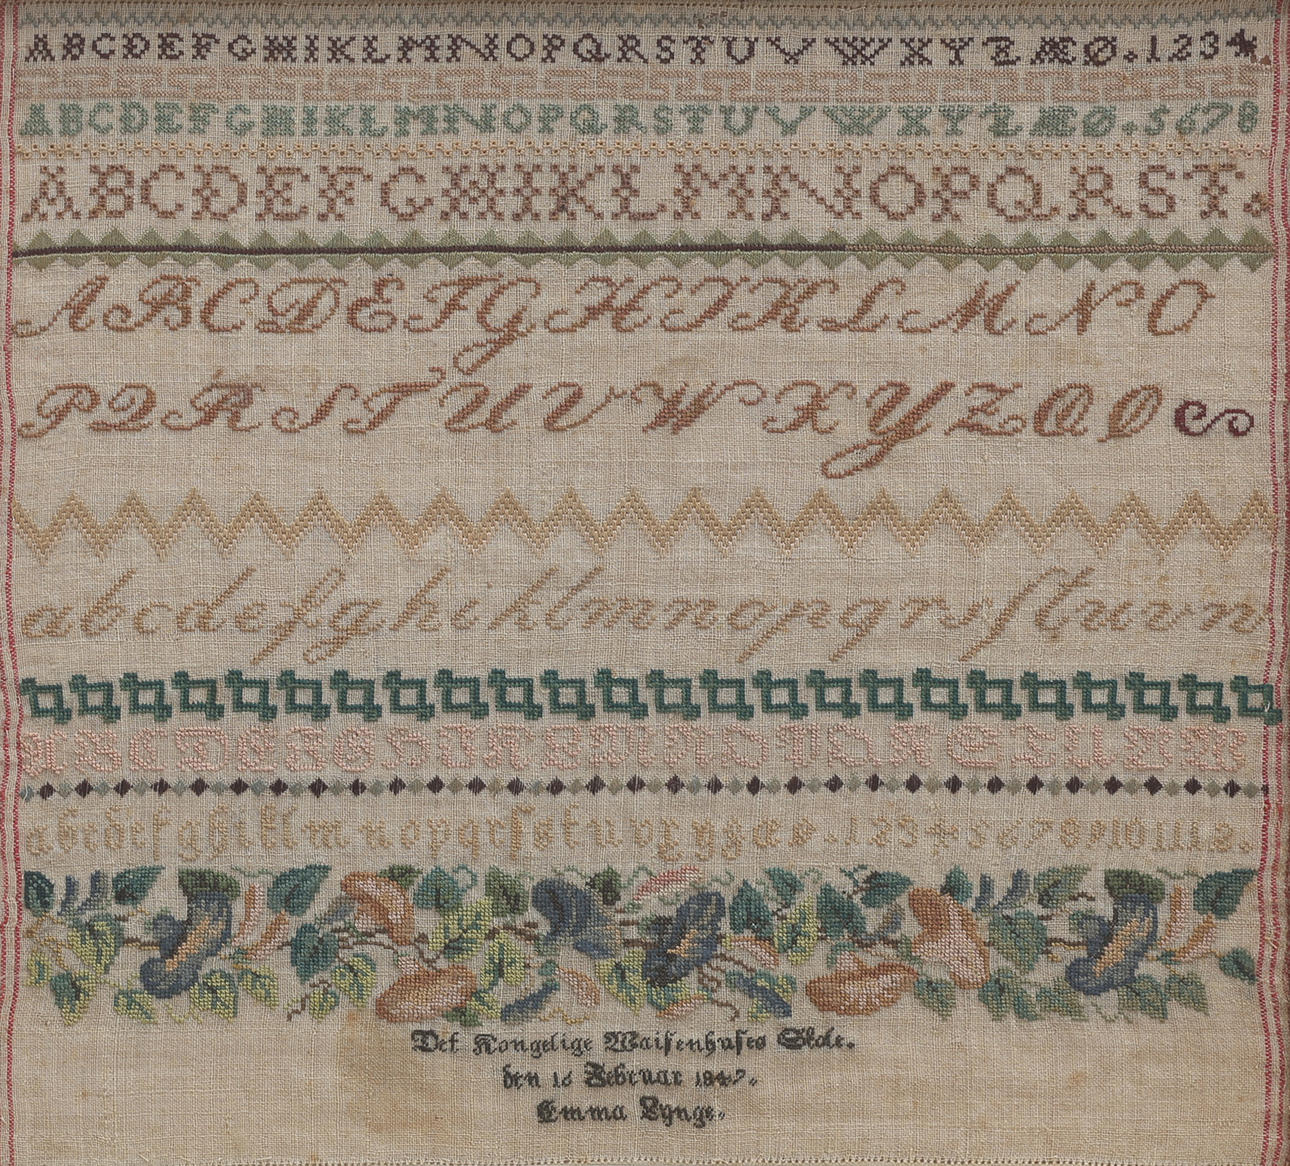 ABCDEFGHIKLMNOPQRSTUVWXYZÆØ.1234
ABCDEFGHIKLMNOPQRSTUVWXYZÆØ.5678
ABCDEFGHIKLMNOPQRST.
ABCDEFGHIKLMNO
PQRSTUVWXYZÆØ
abcdefghiklmnopqrsſtuvn
abcdefghiklmnopqrſstuvxyzæø.123456789101112.
Det Kongelige Waiſenhuſes Skole.
den 16 Februar 1847.
Emma Lynge.